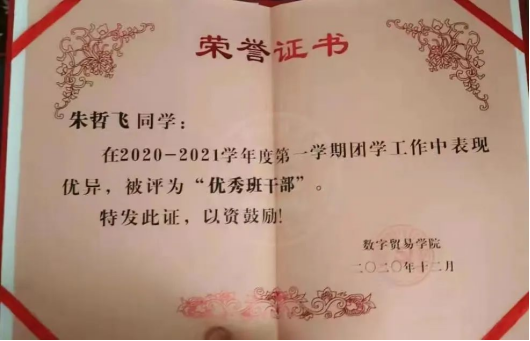 荣誉证书
朱哲飞同学：
在2020-2021学年度第一学期团学工作中表现
优异，被评为“优秀班干部”。
特发此证，以资鼓励!
数字贸易学院
二〇二〇年十二月